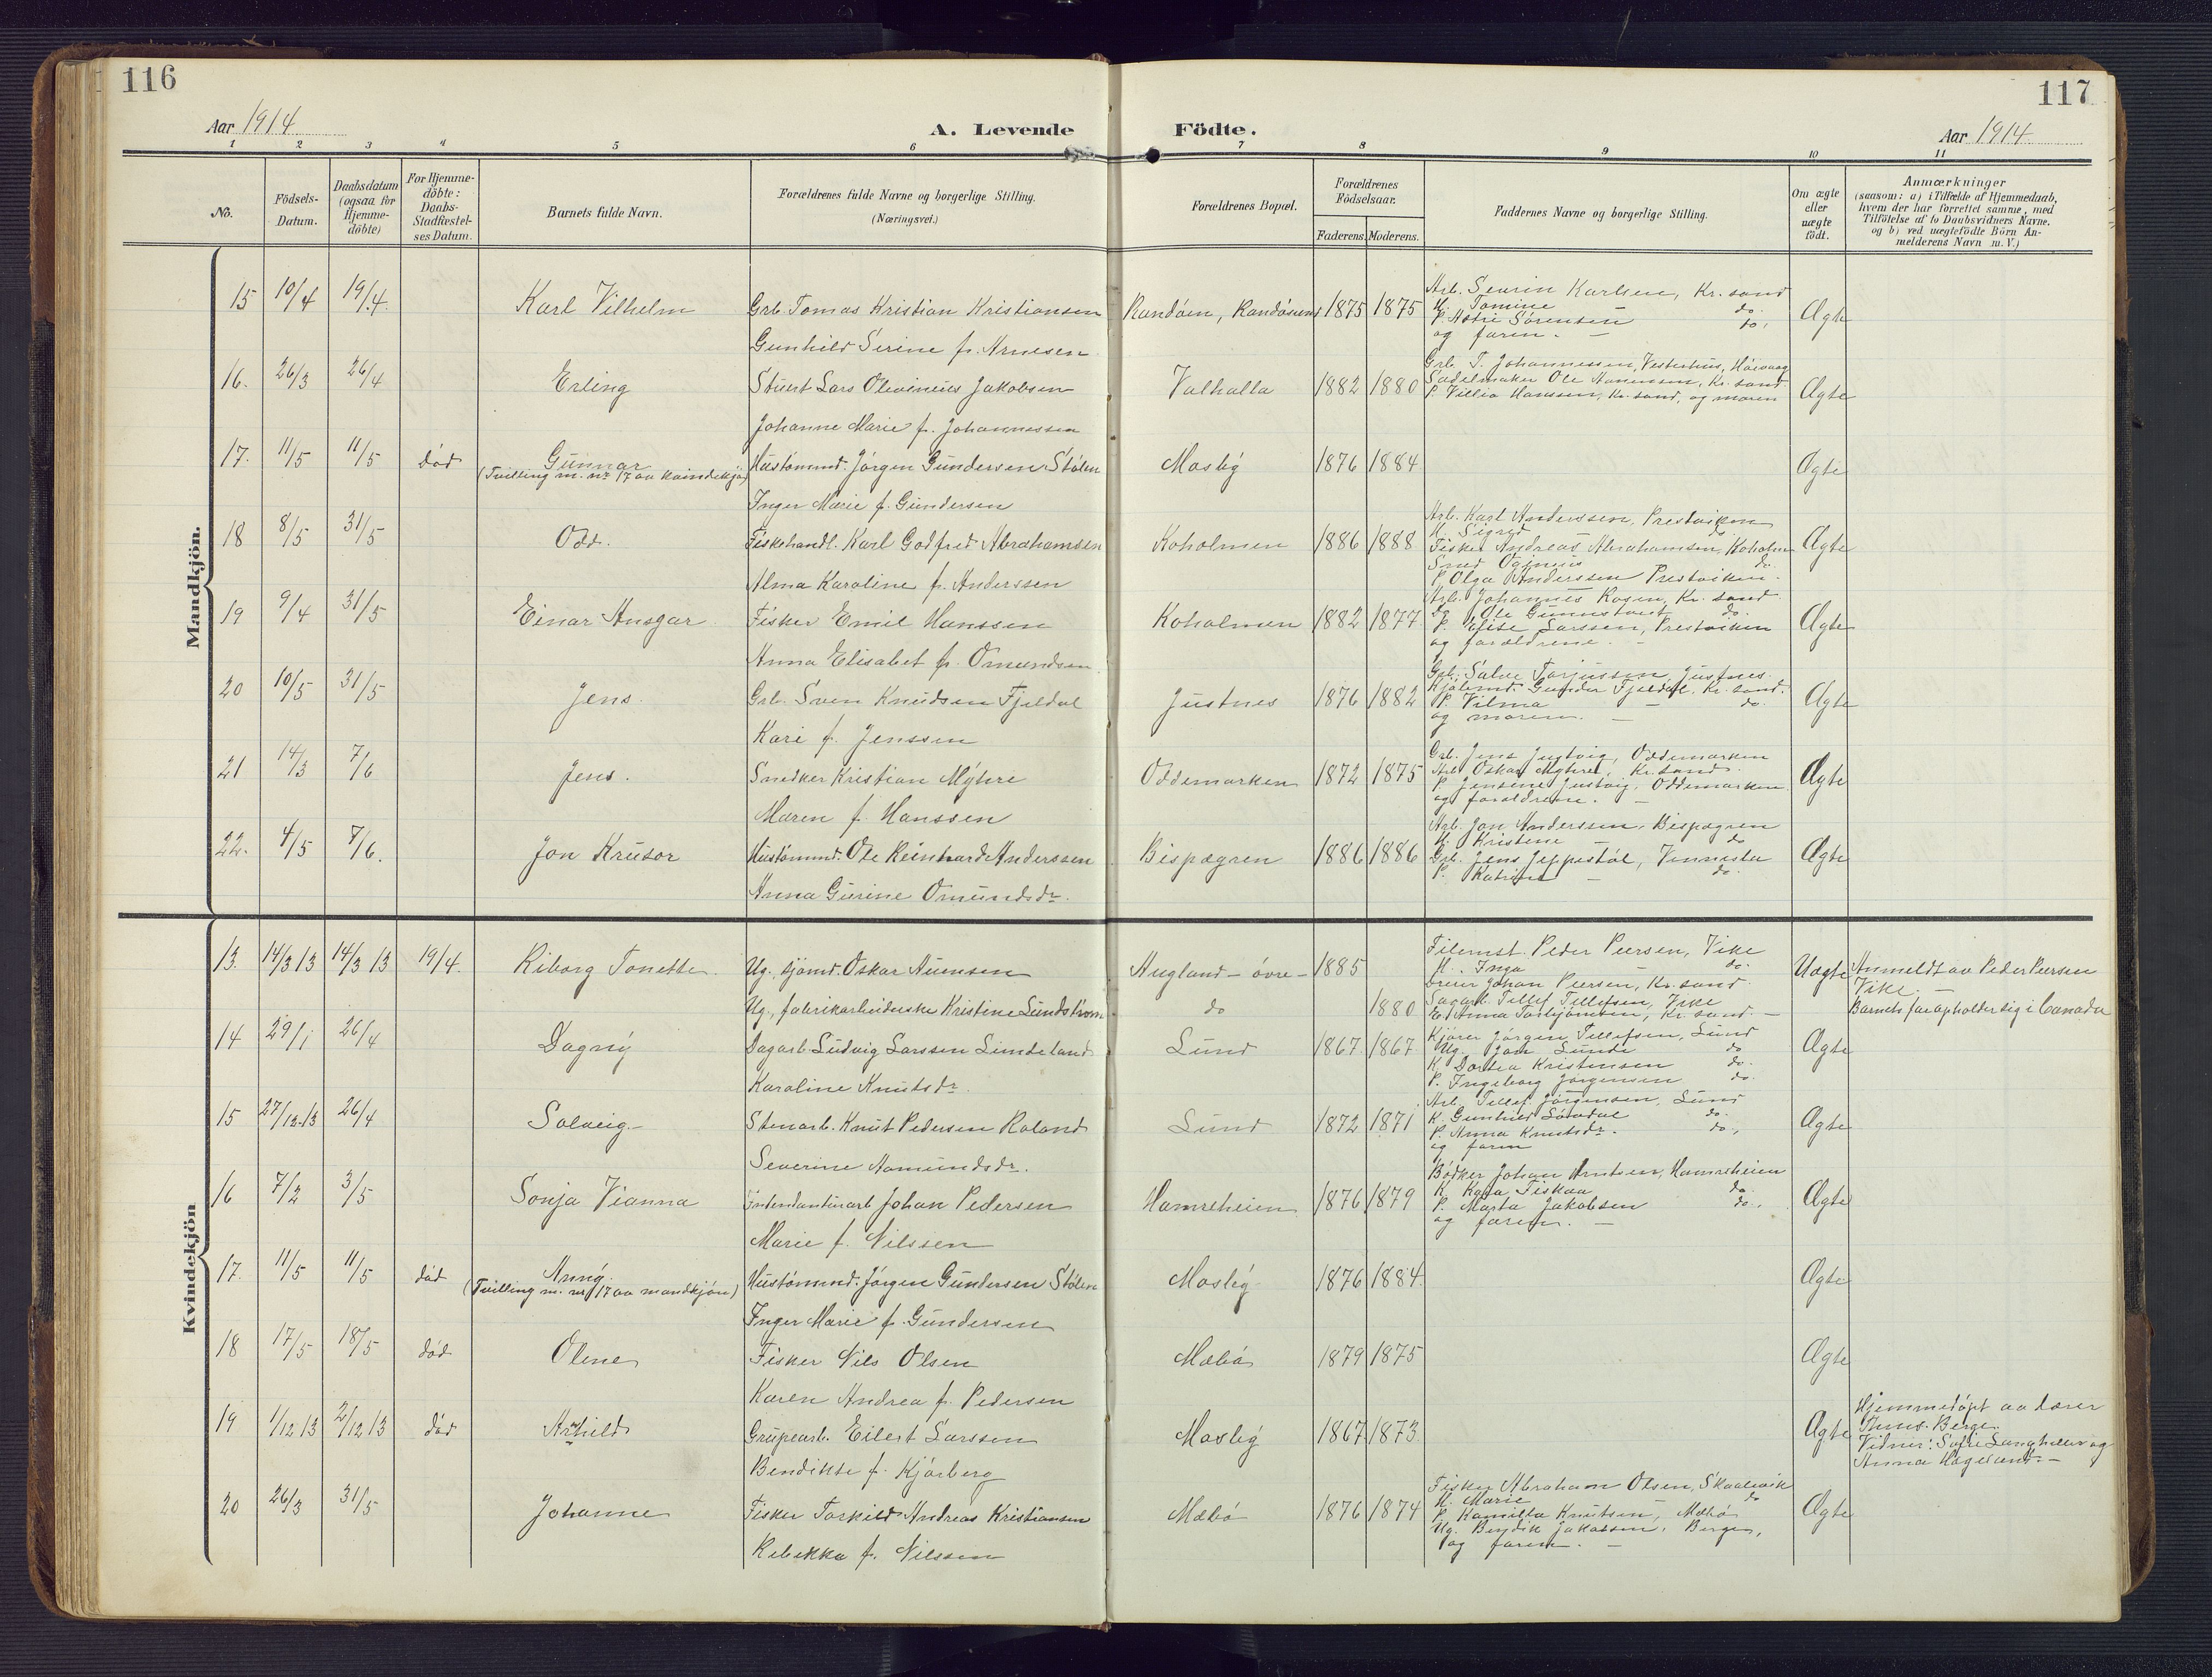 116
117
Aar 1914
A. Levende
Födte.
Aar 1914
1 2 3 4 5 6 7 8 9 10 11
No.
Födsels-
Datum.
Daabsdatum
(ogsaa for
Hjemme-
döbte)
For Hjemme-
döbte:
Daabs-
Stadfæstel-
ses Datum.
Barnets fulde Navn.
Forældrenes fulde Navne og borgerlige Stilling.
(Næringsvei.)
Forældrenes Bopæl.
Forældrenes
Födselsaar.
Faderens. Moderens.
Faddernes Navne og borgerlige Stilling.
Om ægte
eller
uægte
födt.
Anmærkninger
(saasom: a) i Tilfælde af Hjemmedaab,
hvem der har forrettet samme, med
Tilföielse af to Daabsvidners Navne,
og b) ved uægtefödte Börn An-
melderens Navn m. V.)
Mandkjön.
15 10/4 19/4. Karl Vilhelm Grb. Tomas Kristian Kristiansen Randöen, Randösund 1875 1875 Ægte
Gunhild Serine f. Arnesen
Arb. Sevrin Karlsen, Kr. sand
K. Tomine do.
P. Sörensen do.
og faren. —
16. 26/3 26/4 Erling Stuert Lars Olivinius Jakobsen Valhalla 1882 1880 Ægte
Johanne Marie f. Johannessen
Grb. T. Johannessen, Vesterhus, Höivaag
Sadelmaker Ole Hansen, Kr. sand
P. Villia Hanssen, Kr. sand, og moren
17. 11/5 11/5 död Gunnar Hustömmd. Jörgen Gundersen Stölen Mosby 1876 1884 Ægte
(Tvilling m. nr 17 av kvindekjön)
Inger Marie f. Gundersen
18 8/5 31/5 Odd. Fiskehandl. Karl Godfred Abrahamsen Koholmen 1886 1888 Ægte
Alma Karoline f. Anderssen
Arb. Karl Anderssen, Prestviken
K. Sigrid do.
Fisker Andreas Abrahamsen, Koholm
P. Olga Anderssen Prestviken.
19 9/4 31/5 Einar Ansgar Fisker Emil Hanssen Koholmen 1882 1877 Ægte
Anna Elisabet f. Omundsen
Arb. Johannes Rosen, Kr. sand
do Ole do.
P. Elise Larssen, Prestviken
og forældrene. —
20 10/5 31/5 Jens. Grb. Sven Knudsen Fjeldal Justnes 1876 1882 Ægte
Kari f. Jenssen
Grb. Salve Torjussen, Justnes.
Kjöbmd. Gunder Fjeldal, Kr. sand.
P. Vilma — do.
og moren. —
21 14/3 7/6 Jens. Snedker Kristian Myhre Oddemarken 1872 1875 Ægte
Maren f. Hanssen
Grb. Jens Justvig, Oddemarken
Arb. Oskar Myhre, Kr. sand.
P. Jensine Justvig, Oddemarken
og forældrene. —
22. 4/5 7/6. Jon Krusor Hustömmd. Ole Reinhardt Anderssen Bispegren 1886 1886 Ægte
Anna Gurine Omundsdr.
Arb. Jon Anderssen, Bispegren
K. Kristine — do
Grb. Jens Jeppestöl, Vennesla
P. — do.
Kvindekjön
13. 14/3 13 14/3 13 19/4. Riborg Tonette. Ug., sjömd. Oskar Auensen Augland – övre – 1885 Uægte
Ug., fabrikarbeiderske Kristine Lundström do 1880
Filemst. Peder Peersen, Vike
K. Inga do.
Johan Peersen, Kr. sand
Tellef Tellefsen, Vike
E. Anna Torbjörnsen, Kr. sand. —
Anmeldt av Peder Peersen
Vike. —
Barnets far opholder sig i Canada
14 29/1 26/4 Dagny Dagarb. Ludvig Larssen Lindeland Lund 1867. 1867 Ægte
Karoline Knutsdr.
Kjörer Jörgen Tellefsen, Lund
Ug. Lunde do
K. Dortea Kristensen do.
P. Ingeborg Jörgensen do.
15 27/12-13 26/4 Solveig Stenarb. Knut Pedersen Roland Lund 1872 1871 Ægte
Severine Aamundsdr.
Arb. Tellef Jörgensen, Lund
K. Gunhild do.
P. Anna Knutsdr. do.
og faren
16 7/2 3/5 Sonja Vianna Intendanturarb Johan Pedersen Hamreheien 1876 1879 Ægte
Marie f. Nilssen
Bödker Johan Arntsen, Hamreheien
K. Kaja Fiskaa do.
P. Marta Jakobsen do.
og faren. —
17. 11/5 11/5 död Anny. Hustömmd. Jörgen Gundersen Stölen Mosby 1876 1884 Ægte
(Tvilling m. nr 17 av mandkjön)
Inger Marie f. Gundersen
18 17/5 18/5 död Oline Fisker Nils Olsen Mæbö 1879 1875 Ægte
Karen Andrea f. Pedersen
19 1/12 13 2/12 13 död Arnhild Grupearb. Eilert Larssen Mosby 1867 1873 Ægte
Bendikte f. Kjörberg
Hjemmedöpt av lærer
Berge.
Vidner: Sofie og
Anna Hageland. —
20 26/3 31/5 Johanne Fisker Torkild Andreas Kristiansen Mæbö 1876 1874 Ægte
Rebekka f. Nilssen
Fisker Abraham Olsen, Skaalevik
K. Marie do
P. Kamilla Knutsen, Mæbö
Ug. Bendik Jakobsen, Berge,
og faren. —